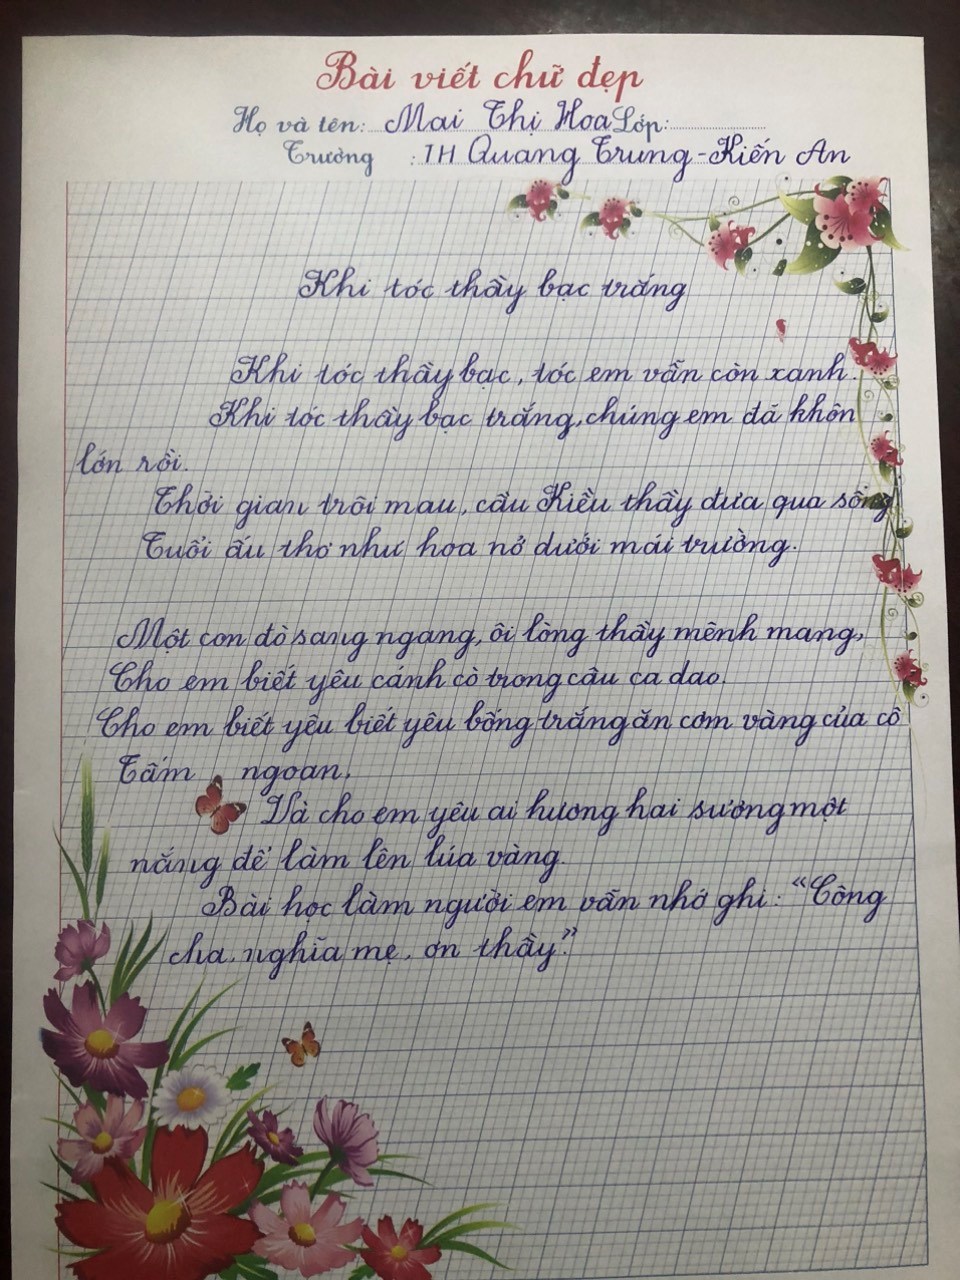 Bài viết chữ đẹp
Họ và tên: Mai Thị Hoa Lớp:
Trường : TH Quang Trung - Kiến An
Khi tóc thầy bạc trắng
Khi tóc thầy bạc, tóc em vẫn còn xanh.
Khi tóc thầy bạc trắng, chúng em đã khôn
lớn rồi.
Thời gian trôi mau, cầu Kiều thầy đưa qua sông
Tuổi ấu thơ như hoa nở dưới mái trường.
Một con đò sang ngang, ôi lòng thầy mênh mang,
Cho em biết yêu cánh cò trong câu ca dao.
Cho em biết yêu biết yêu bống trắng ăn cơm vàng của cô
Tấm ngoan.
Và cho em yêu ai hương hai sương một
nắng để làm lên lúa vàng.
Bài học làm người em vẫn nhớ ghi: "Công
cha, nghĩa mẹ, ơn thầy"